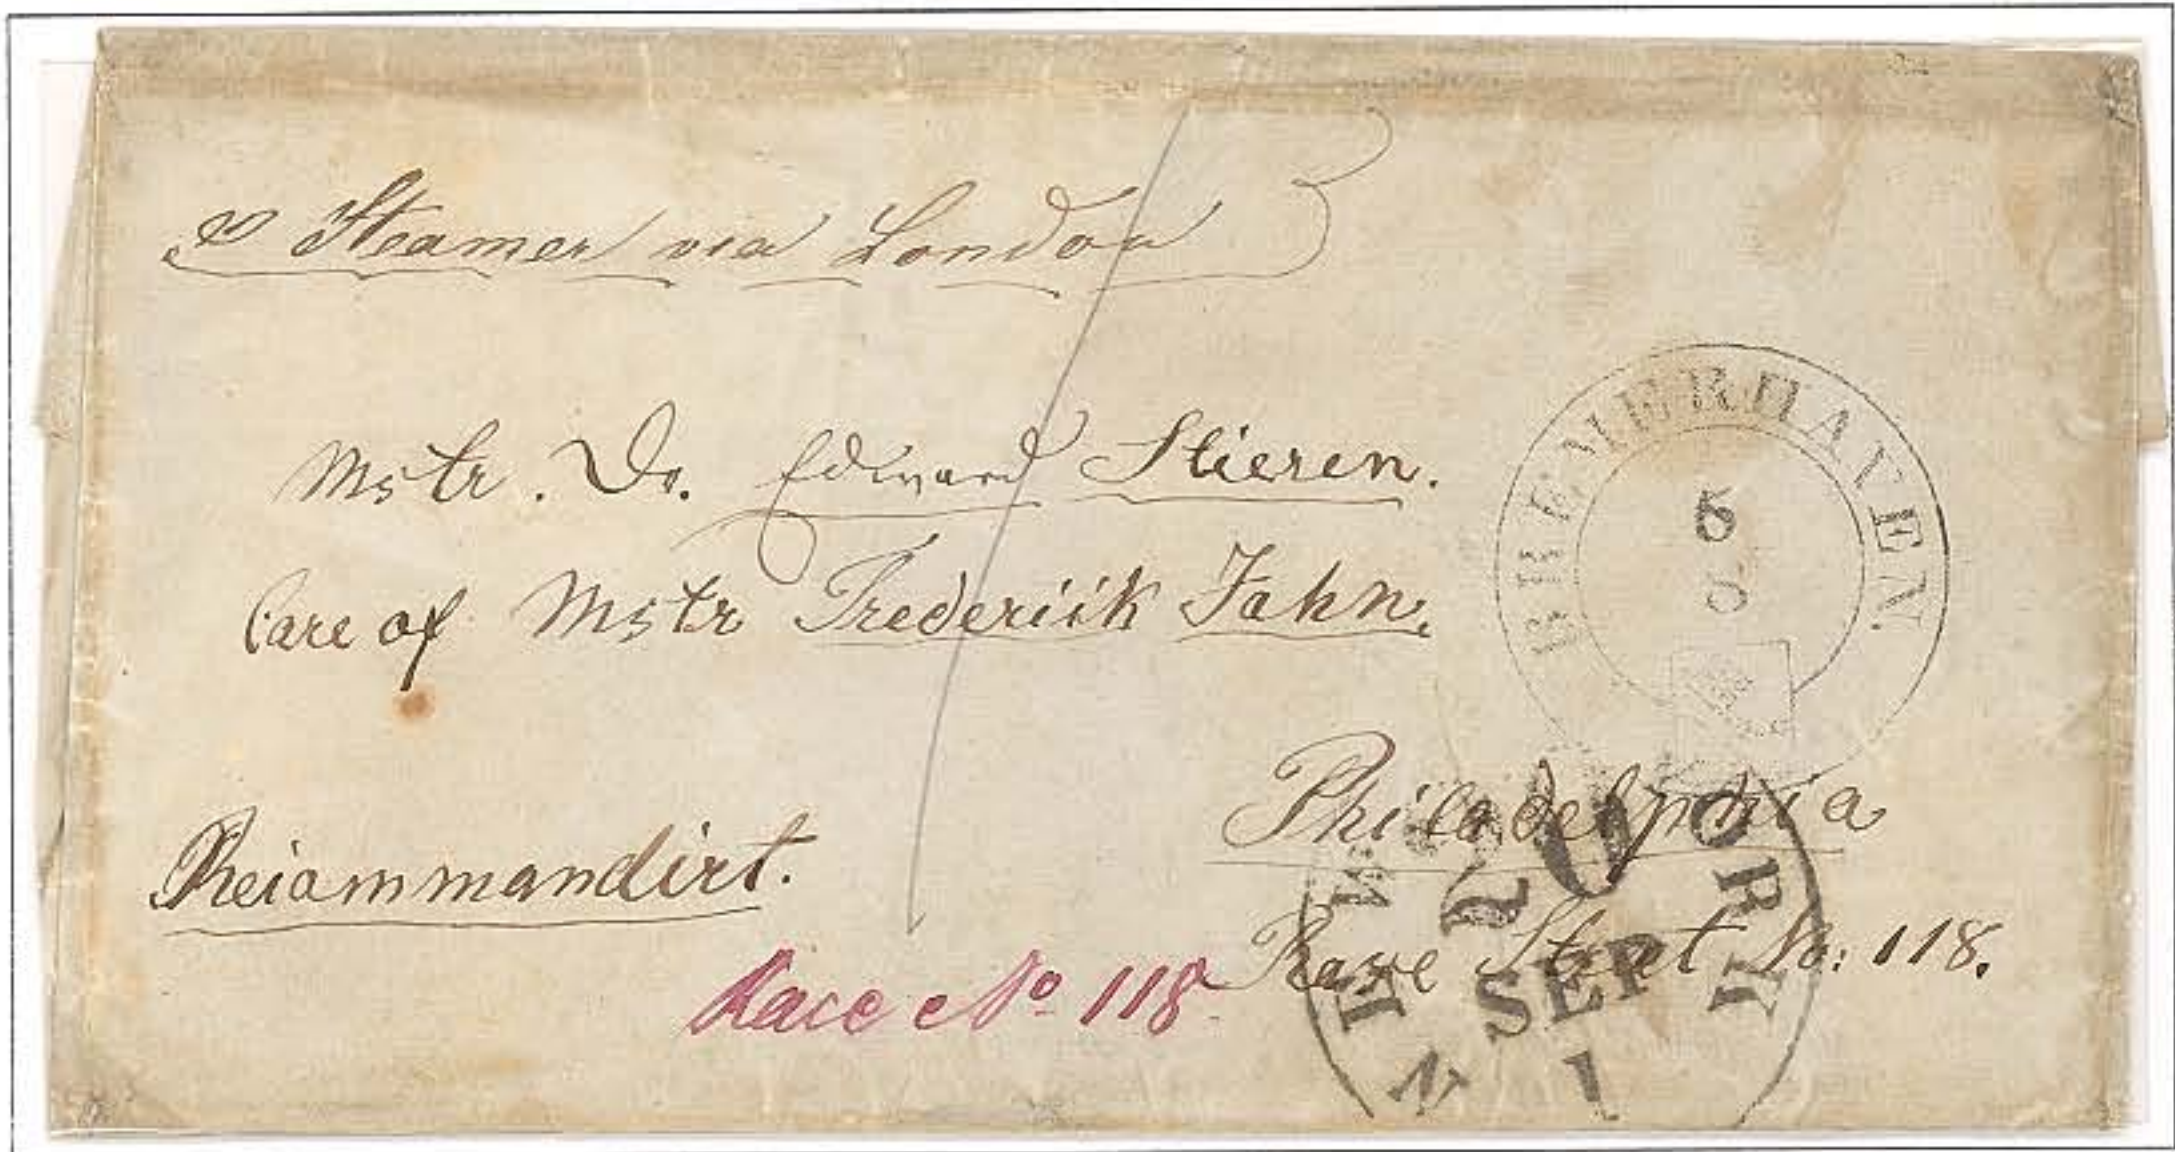 pr Steamer via London
Mstr. Dr. Edward Stieren.
Care of Mstr Frederiik Jahn.
BREMERHAVEN.
Philadelphia
Reiammandirt.
Race Street No: 118.
Race No 118
NEW YORK
20
SEP
1